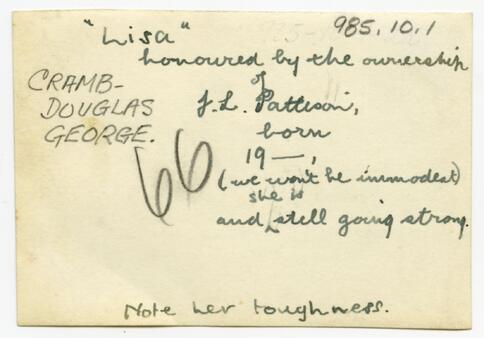 985.10.1
"Lisa"
honoured by the ownership
of
J.L. Pattison,
born
19—,
(we won't be immodest)
she is
and still going strong.
CRAMB-
DOUGLAS
GEORGE.
66
Note her toughness.